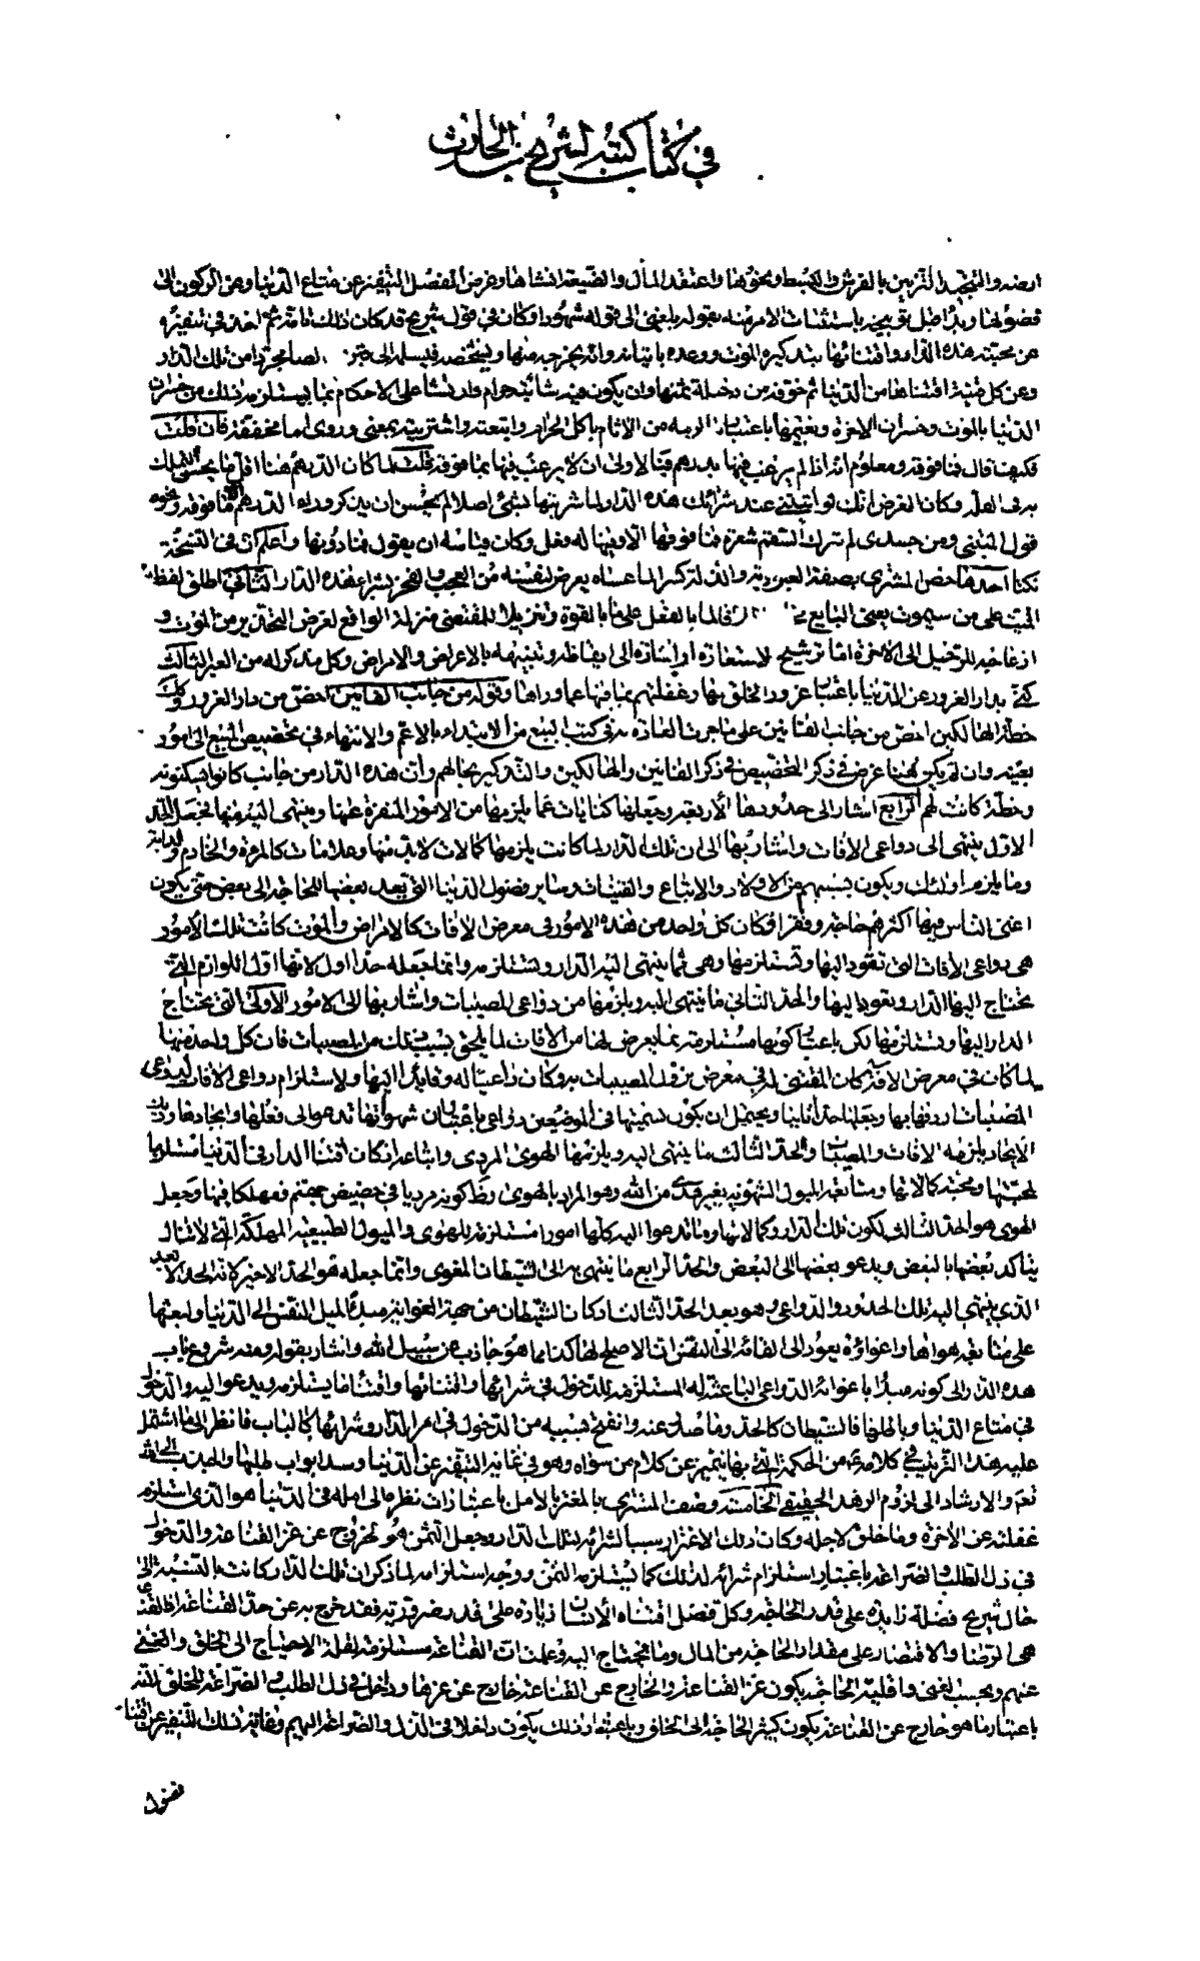 في كتاب كتبه لشريح بن الحارث
ارضه والتنجيد التزيين بالفرش والبسط ونحوها واعتقد المال والضيعة اقتناها وغرض الفصل التنفير عن متاع الدنيا وعن الركون إلى
فضولها باستثبات الامر منه بقوله بلغني إلى قوله شهودا وكان في قول شريح قد كان ذلك اخذ في تنفيره
عن محبته هذه الدار واقتنائها بتذكيره الموت ووعده باتيانه وانه يخرجه منها ويشخصه فيسلمه إلى قبره من تلك الدار
وعن كل قنية اقتناها من الدنيا ثم خوفه من دخله ثمنها وان يكون فيه شائبة حرام بما يستلزمه ذلك من خسران
الدنيا بالموت وخسران الاخرة ونعيمها باعتبار من الاثام باكل الحرام وابتعته واشتريته بمعنى وروى اما مخففة فان قلت
فكيف قال فما فوقه ومعلوم انه اذا لم يرغب فيها بدرهم فبالاولى ان لا يرغب فيها بما فوقه قلت لما كان الدرهم هنا اقل ما يحسن التملك
به في القلة وكان الغرض انك لو اتيتني عند شرائك هذه الدار لما شريتها بشئ اصلا لم يحسن ان يذكر وراء الدرهم الا ما فوقه ونحوه
قول المتنبي ومن جسدي لم يترك السقم شعرة فما فوقها الا وفيها له فعل وكان قياسه ان يقول فما دونها واعلم ان في النسخة
نكتا احدها خص المشتري بصفة العبودية والذلة كسرا لما عساه يعرض لنفسه من العجب والفخر بشراء هذه الدار الثانية اطلق لفظ
الميت على من سيموت يعني البايع لما بالفعل على ما بالقوة وتنزيلا للمقتضي منزلة الواقع لغرض التحذير من الموت و
ازعاجه للرحيل إلى الاخرة اما ترشيح لاستعارة او اشارة إلى ايقاظه وتنبيهه بالاعراض والامراض وكل مذكر له من العبر الثالثة
كنى بدار الغرور عن الدنيا باعتبار غرور الخلق بها وغفلتهم بما فيها عما وراءها وقوله من جانب الفانين اخص من دار الغرور وكذلك
خطة الهالكين اخص من جانب الفانين على ما جرت العادة به في كتب البيع من الابتداء بالاعم والانتهاء في تخصيص المبيع إلى امور
بعينه وان لم يكن لهنا غرض في ذكر التخصيص في ذكر الفانين والهالكين والتذكير بحالهم وان هذه الدار من جانب كانوا يسكنونه
وخطة كانت لهم الرابع اشار إلى حدودها الأربعة وجعلها كنايات عما يلزمها من الامور المنفرة عنها وينتهي اليه منها فجعل الحد
الاول ينتهي إلى دواعي الافات واشار بها إلى ان تلك الدار لما كانت يلزمها كمالات لا بد منها وعلامات كالمرءة والخادم والدابة
وما يلزم اولئك ويكون بسببهم من الاولاد والاتباع والقينات وسائر فضول الدنيا التي يعد بعضها للحاجة إلى بعض حتى يكون
اغنى الناس فيها اكثرهم حاجة وفقرا وكان كل واحد من هذه الامور في معرض الافات كالامراض والموت كانت تلك الأمور
هي دواعي الافات التي تقود اليها وتستلزمها وهي مما ينتهي اليه الدار وتستلزمه وانما جعله حدا اول لانها اول اللوازم التي
تحتاج اليها الدار وتعود اليها والحد الثاني ما ينتهي اليه ويلزمها من دواعي المصيبات واشار بها إلى الامور الأولى التي يحتاج
الدار اليها وتستلزمها لكن باعتبار كونها مستلزمة بما يعرض لها من الافات لما يلحق بسبب تلك من المصيبات فان كل واحد منها
لما كان في معرض الافة كان المقتني له في معرض نزول المصيبات به وكان داعيا له وقائدا اليها ولاستلزام دواعي الافات لدواعي
المصيبات اردفها بها وجعلها حدا ثانيا ويحتمل ان يكون تسميتها في الموضعين دواعي باعتبار ان شهواتها تدعو إلى فعلها وايجادها وذلك
الايجاد يلزمه الافات والمصيبات والحد الثالث ما ينتهي اليه ويلزمها الهوى المردي واتباعه اذ كان اقتناء الدار في الدنيا مستلزما
لمحبتها ومحبة كمالاتها ومتابعة الميول الشهوية بغير هدى من الله وهو المراد بالهوى وظ كونه مرديا في حضيض جهنم ومهلكا فيها وجعل
الهوى هو الحد الثالث لكون تلك الدار وكمالاتها وما تدعوا اليه كلها امورا مستلزمة للهوى والميول الطبيعية المهلكة التي لا تزال
يتاكد بعضها بالبعض ويدعو بعضها إلى البعض والحد الرابع ما ينتهي به إلى الشيطان المغوي وانما جعله هو الحد الاخير لانه الحد الابعد
الذي ينتهي اليه تلك الحدود والدواعي وهو بعد الحد الثالث اذ كان الشيطان من جهة الغواية مبدأ لميل النفس إلى الدنيا ولبعثها
على متابعة هواها واغواؤه يعود إلى القائه إلى النفس ان الاصلح لها كذا مما هو جاذب عن سبيل الله واشار بقوله ومنه شروع باب
هذه الدار إلى كونه مبدأ باغوائه الدواعي الباعثة له المستلزمة للدخول في شرائها واقتنائها واقتناء ما يستلزمه ويدعو اليه والدخول
في متاع الدنيا وباطلها فالشيطان كالحد وما صدر عنه وانفتح بسببه من الدخول في امر الدار وشرائها كالباب فانظر إلى ما اشتمل
عليه هذا الترتيب في كلامه من الحكمة التي بها يتميز عن كلام من سواه وهو في غاية التنفير عن الدنيا وسد ابواب طلبها والجذب إلى الله
تعالى والارشاد إلى لزوم الزهد الحقيقي الخامسة وصف المشتري بالمغتر بالامل باعتبار ان نظره إلى امله في الدنيا هو الذي استلزم
غفلته عن الأخرة وما خلق لاجله وكان ذلك الاغترار سببا لشرائه لتلك الدار وجعل الثمن هو الخروج عن عز القناعة والدخول
في ذل الطلب والضراعة باعتبار استلزام شرائه لذلك كما يستلزمه الثمن ووجه استلزامه لما ذكر ان تلك الدار كانت بالنسبة إلى
حال شريح فضلة زايدة على قدر الحاجة وكل فضل اقتناه الأنسان زيادة على قدر ضرورته فقد خرج به عن حد القناعة اذ القناعة
هي الرضا والاقتصار على مقدار الحاجة من المال وما يحتاج اليه وعلمت ان القناعة مستلزمة لقلة الاحتياج إلى الخلق والغنى
عنهم وبحسب الغنى واقلية الحاجة يكون عز القناعة والخارج عن القناعة خارج عن عزها وداخل في ذل الطلب والضراعة للخلق لانه
باعتبار ما هو خارج عن القناعة يكون كثير الحاجة إلى الخلق وباعتبار ذلك يكون داخلا في الذل والضراعة اليهم وغاية ذلك التنفير عن اقتناء
فضول